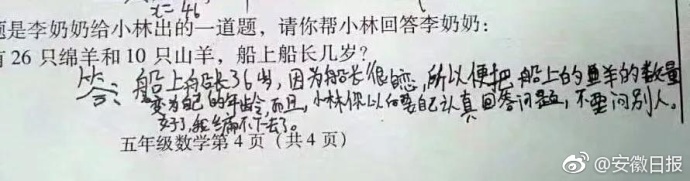 x=46
题是李奶奶给小林出的一道题，请你帮小林回答李奶奶：
有26只绵羊和10只山羊，船上船长几岁？
答：船上船长36岁，因为船长很的恋，所以便把船上的羊的数量
变为自己的年龄。而且，小林你以后要自己认真回答问题，不要问别人。
好了，我编不下去了。
五年级数学第4页（共4页）
@安徽日报